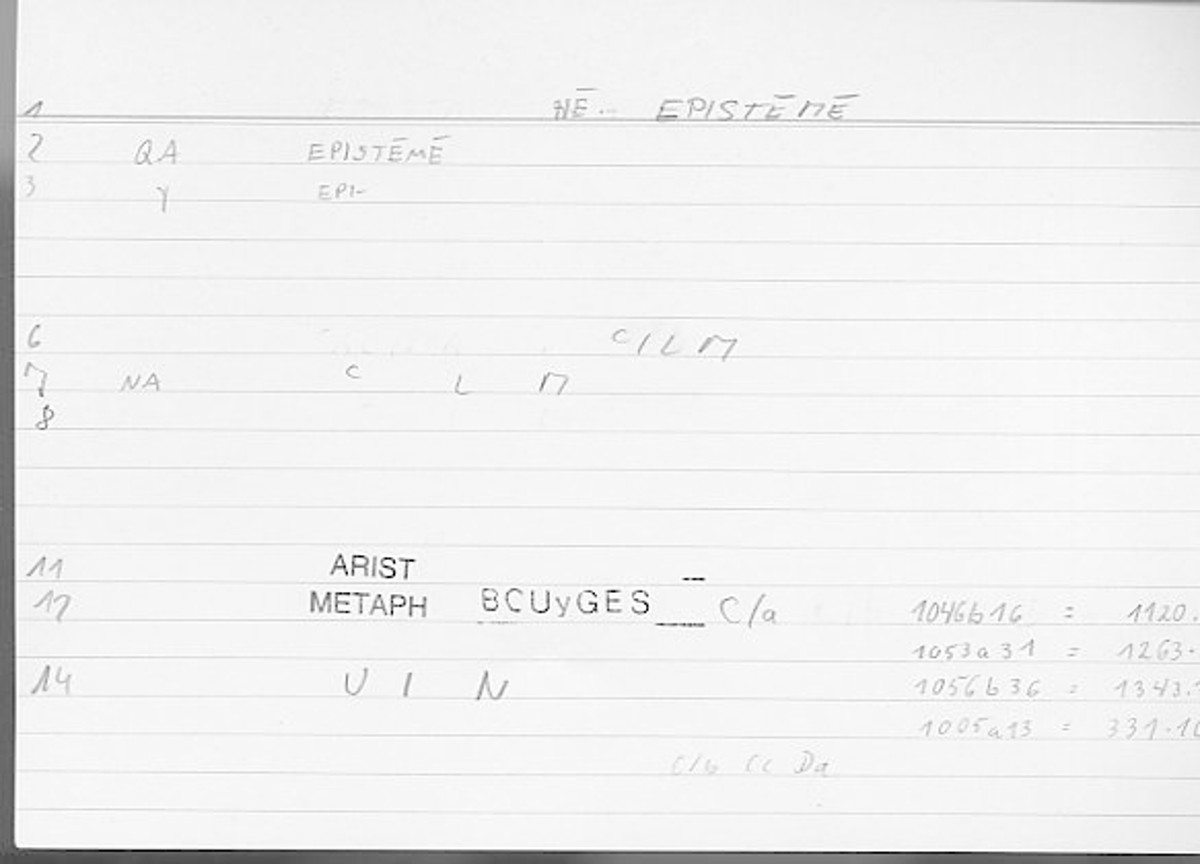 1 HĒ.. EPISTĒMĒ
2 QA EPISTĒMĒ
3 Y EPI-
6 C/LM
7 NA C L M
8
11 ARIST
12 METAPH BCUyGES C/a 1046b16. = 1120.
1053a31 = 1263.
14 U I N 1056b36 = 1343.
1005a13 = 331.10
C/b Cc Da